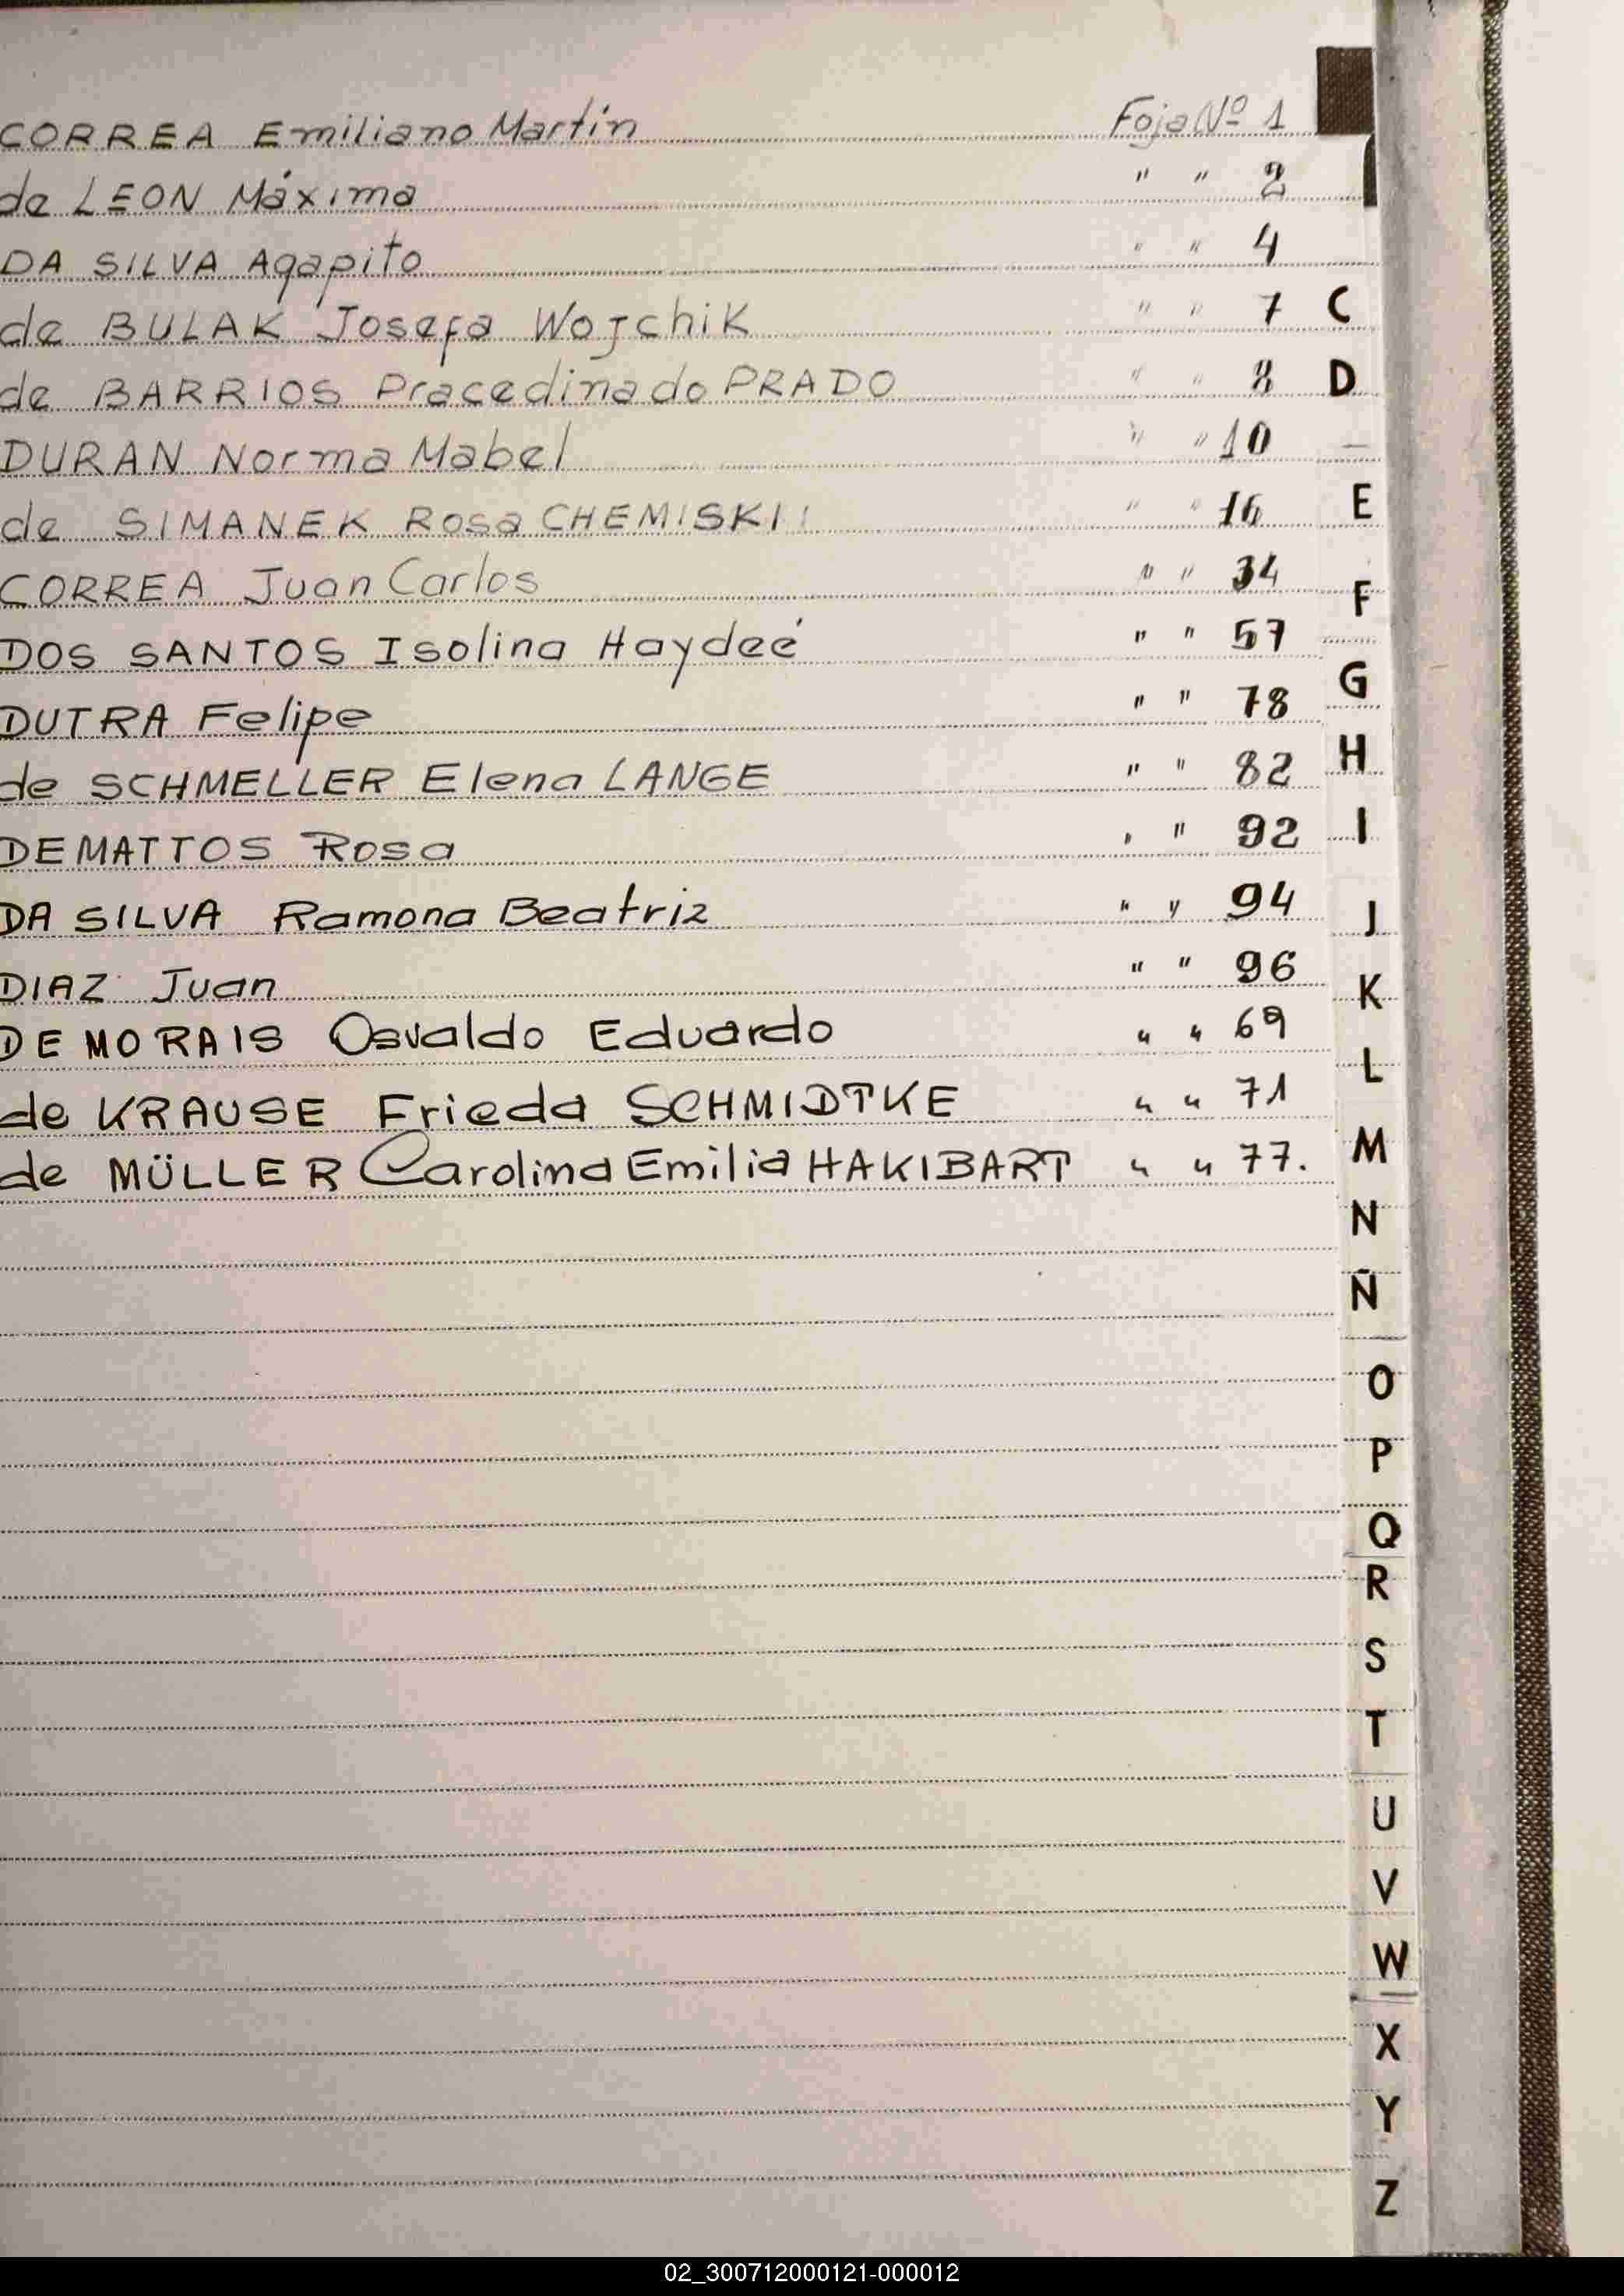 CORREA Emiliano Martín Foja Nº 1
de LEON Máxima " " 2
DA SILVA Agapito " " 4
de BULAK Josefa Wojchik " " 7
de BARRIOS Pracedina do PRADO " " 8
DURAN Norma Mabel " " 10
de SIMANEK Rosa CHEMISKI " " 16
CORREA Juan Carlos " " 34
DOS SANTOS Isolina Haydeé " " 57
DUTRA Felipe " " 78
de SCHMELLER Elena LANGE " " 82
DEMATTOS Rosa " " 92
DA SILVA Ramona Beatriz " " 94
DIAZ Juan " " 96
DE MORAIS Osvaldo Eduardo " " 69
de KRAUSE Frieda SCHMIDTKE " " 71
de MÜLLER Carolina Emilia HAKIBART " " 77.
C
D
E
F
G
H
I
J
K
L
M
N
Ñ
O
P
Q
R
S
T
U
V
W
X
Y
Z
02_300712000121-000012